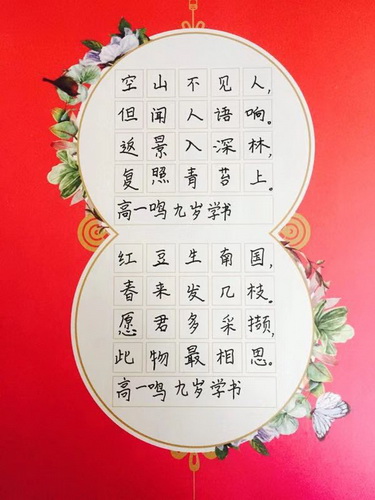 空山不见人,
但闻人语响。
返景入深林,
复照青苔上。
高一鸣 九岁学书
红豆生南国,
春来发几枝。
愿君多采撷,
此物最相思。
高一鸣 九岁学书